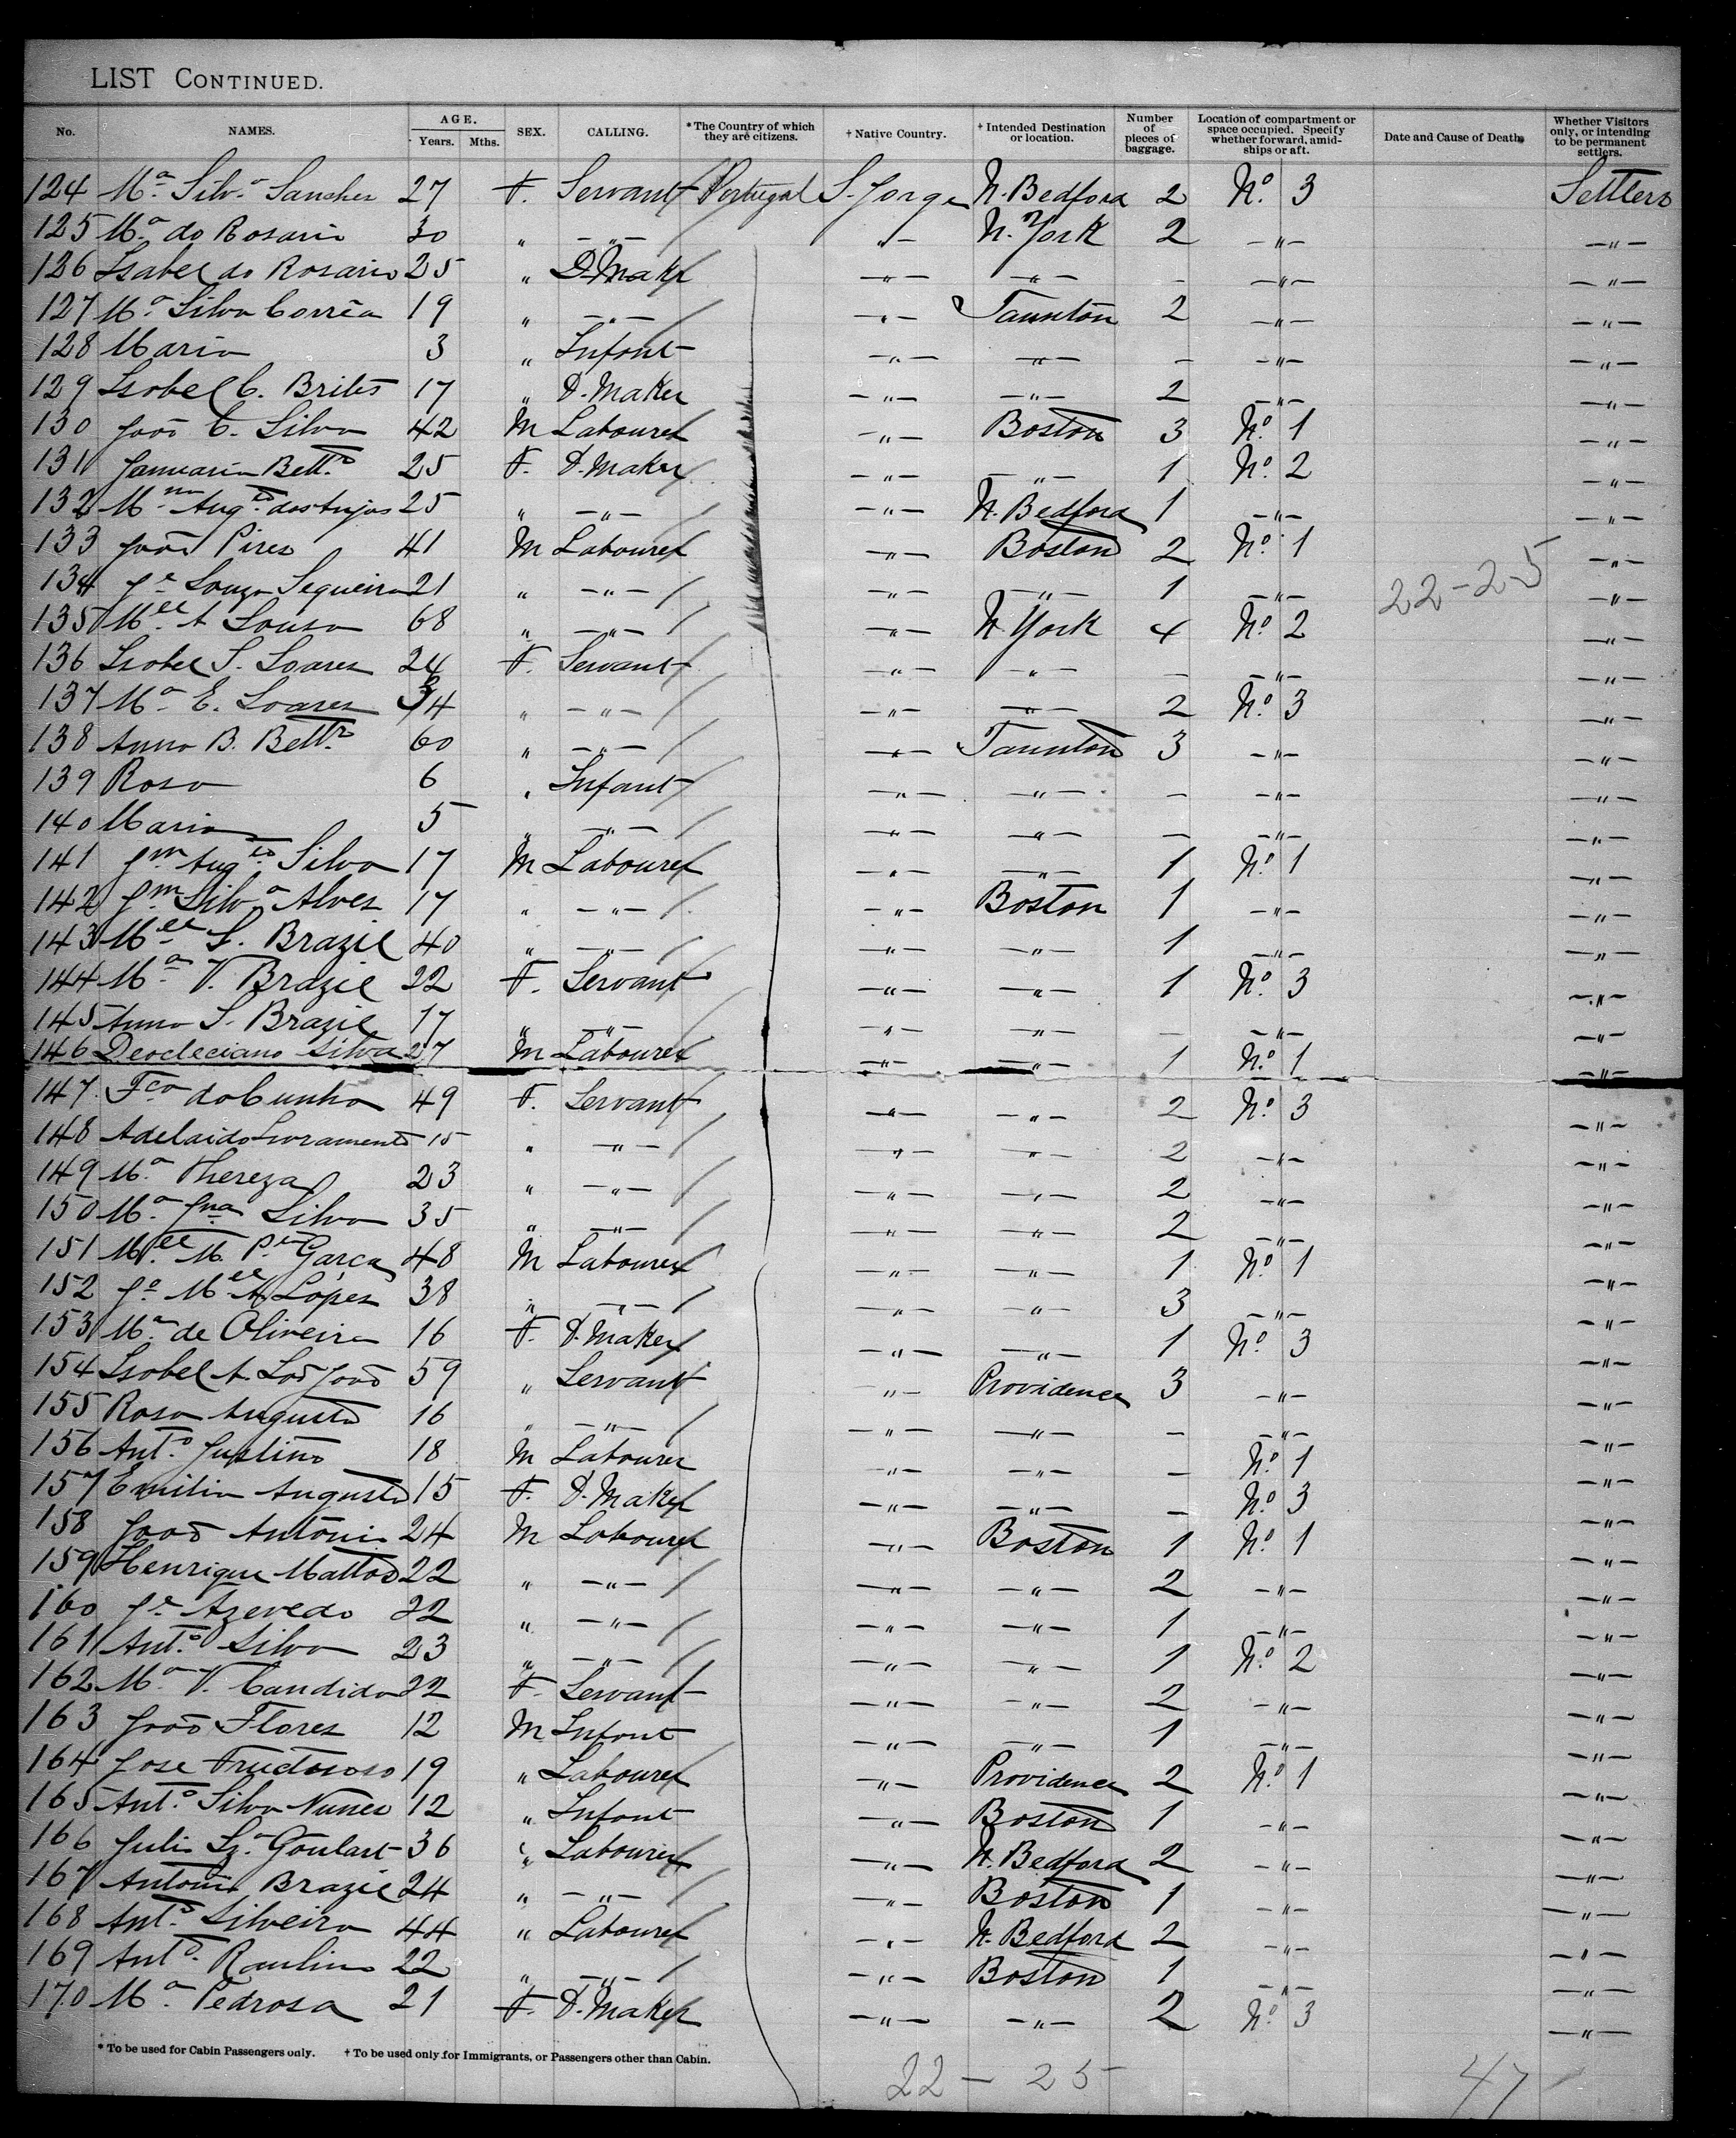 LIST CONTINUED.
No. NAMES. AGE. Years. Mths. SEX. CALLING. *The Country of which they are citizens. †Native Country. †Intended Destination or location. Number of pieces of baggage. Location of compartment or space occupied. Specify whether forward, amidships or aft. Date and Cause of Death. Whether Visitors only, or intending to be permanent settlers.
124 Mª Silvª Sanches 27 F. Servant Portugal S. Jorge N. Bedford 2 Nº 3 Settlers
125 Mª do Rosario 30 " —"— "— N. York 2 —"— —"—
126 Isabel do Rosario 25 " D. Maker —"— —"— - —"— —"—
127 Mª Silva Corrêa 19 " —"— —"— Taunton 2 —"— —"—
128 Maria 3 " Infant —"— —"— - —"— —"—
129 Isabel C. Brites 17 " D. Maker —"— —"— 2 —"— —"—
130 João C. Silva 42 M Labourer —"— Boston 3 Nº 1 —"—
131 Januaria Bettº 25 F. D. Maker —"— —"— 1 Nº 2 —"—
132 Augtº dos Anjos 25 " —"— —"— N. Bedford 1 —"— —"—
133 João Pires 41 M Labourer —"— Boston 2 Nº 1 —"—
134 Je Souza Sequeira 21 " —"— —"— —"— 1 —"— 22-25 —"—
135 Mel A Sousa 68 " —"— —"— N York 4 Nº 2 —"—
136 Isabel S. Soares 24 F. Servant —"— —"— — —"— —"—
137 Mª E. Soares 34 " —"— —"— —"— 2 Nº 3 —"—
138 Anna B. Bettº 60 " —"— —"— Taunton 3 —"— —"—
139 Rosa 6 " Infant —"— —"— - —"— —"—
140 Maria 5 " —"— —"— —"— — —"— —"—
141 Jm Augtº Silva 17 M Labourer —"— —"— 1 Nº 1 —"—
142 Jm Silvª Alves 17 " —"— —"— Boston 1 —"— —"—
143 Mel S. Brazil 40 " —"— —"— —"— 1 —"— —"—
144 Mª V. Brazil 22 F. Servant —"— —"— 1 Nº 3 —"—
145 Anna S. Brazil 17 " —"— —"— —"— — —"— —"—
146 Deocleciano Silva 27 M Labourer —"— —"— 1 Nº 1 —"—
147 Fca da Cunha 49 F. Servant —"— —"— 2 Nº 3 —"—
148 Adelaide Livramento 15 " —"— —"— —"— 2 —"— —"—
149 Mª Thereza 23 " —"— —"— —"— 2 —"— —"—
150 Mª Jna Silva 35 " —"— —"— —"— 2 —"— —"—
151 Mel M. Garcia 48 M Labourer —"— —"— 1 Nº 1 —"—
152 Jº Mel A Lopes 38 " —"— —"— —"— 3 —"— —"—
153 Mª de Oliveira 16 F. D. Maker —"— —"— 1 Nº 3 —"—
154 Isabel A. São João 59 " Servant —"— Providence 3 —"— —"—
155 Rosa Augusta 16 " —"— —"— —"— - —"— —"—
156 Antº Justino 18 M Labourer —"— —"— — Nº 1 —"—
157 Emilia Augusta 15 F. D. Maker —"— —"— - Nº 3 —"—
158 João Antonio 24 M Labourer —"— Boston 1 Nº 1 —"—
159 Henrique Mattos 22 " —"— —"— —"— 2 —"— —"—
160 Je Azevedo 22 " —"— —"— —"— 1 —"— —"—
161 Antº Silva 23 " —"— —"— —"— 1 Nº 2 —"—
162 Mª V. Candida 22 F. Servant —"— —"— 2 —"— —"—
163 João Flores 12 M Infant —"— —"— 1 —"— —"—
164 Jose Fructuoso 19 " Labourer —"— Providence 2 Nº 1 —"—
165 Antº Silva Nunes 12 " Infant —"— Boston 1 —"— —"—
166 Julio Goulart 36 " Labourer —"— N. Bedford 2 —"— —"—
167 Antonio Brazil 24 " —"— —"— Boston 1 —"— —"—
168 Antº Silveira 44 " Labourer —"— N. Bedford 2 —"— —"—
169 Antº Raulino 22 " —"— —"— Boston 1 —"— —"—
170 Mª Pedrosa 21 F. D. Maker —"— —"— 2 Nº 3 —"—
* To be used for Cabin Passengers only. † To be used only for Immigrants, or Passengers other than Cabin.
22 - 25 47